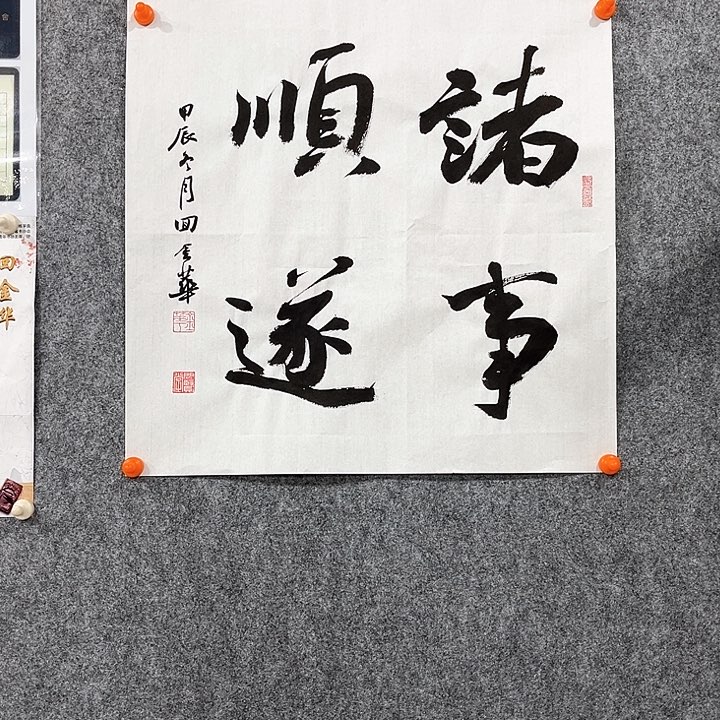 諸事
順遂
甲辰冬月田金華
田金华